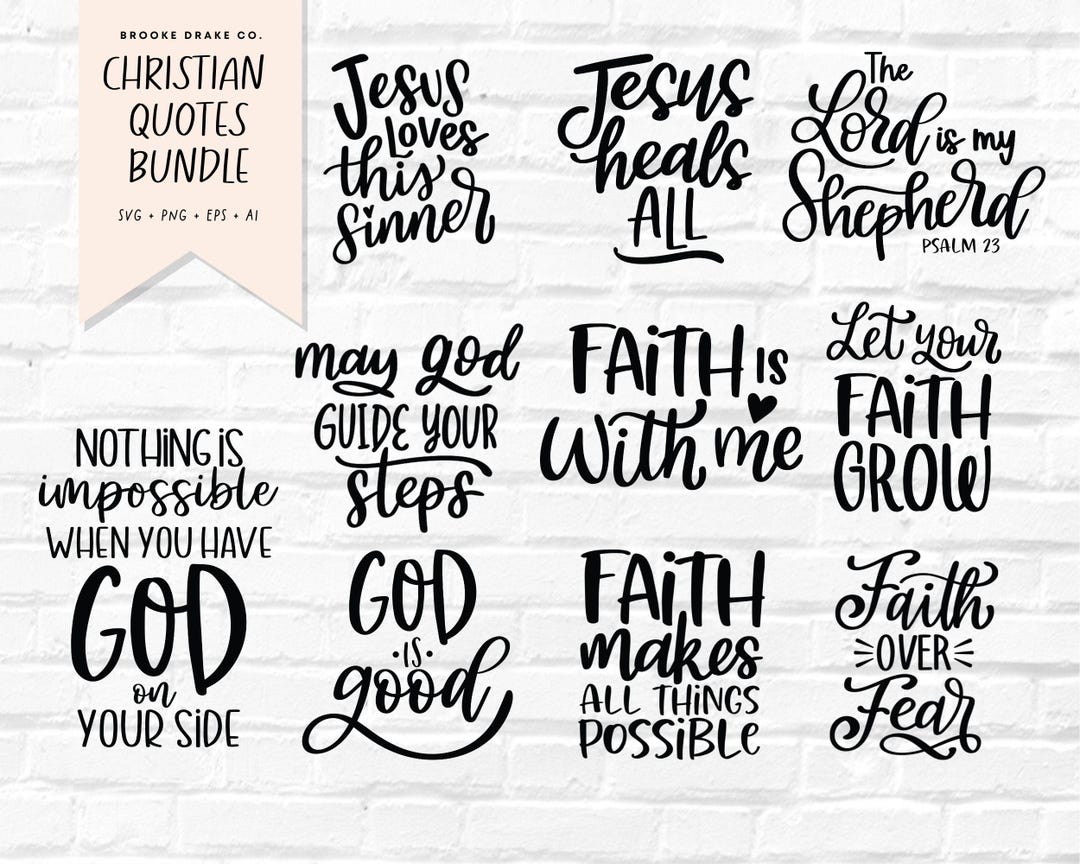 BROOKE DRAKE CO.
CHRISTIAN
QUOTES
BUNDLE
SVG + PNG + EPS + AI
Jesus
loves
this
sinner
Jesus
heals
ALL
The
Lord is my
Shepherd
PSALM 23
NOTHING IS
impossible
WHEN YOU HAVE
GOD
on
YOUR SIDE
may god
GUIDE YOUR
steps
FAITH IS
with me
Let your
FAITH
GROW
GOD
IS
good
FAITH
makes
ALL THINGS
POSSIBLE
Faith
OVER
Fear